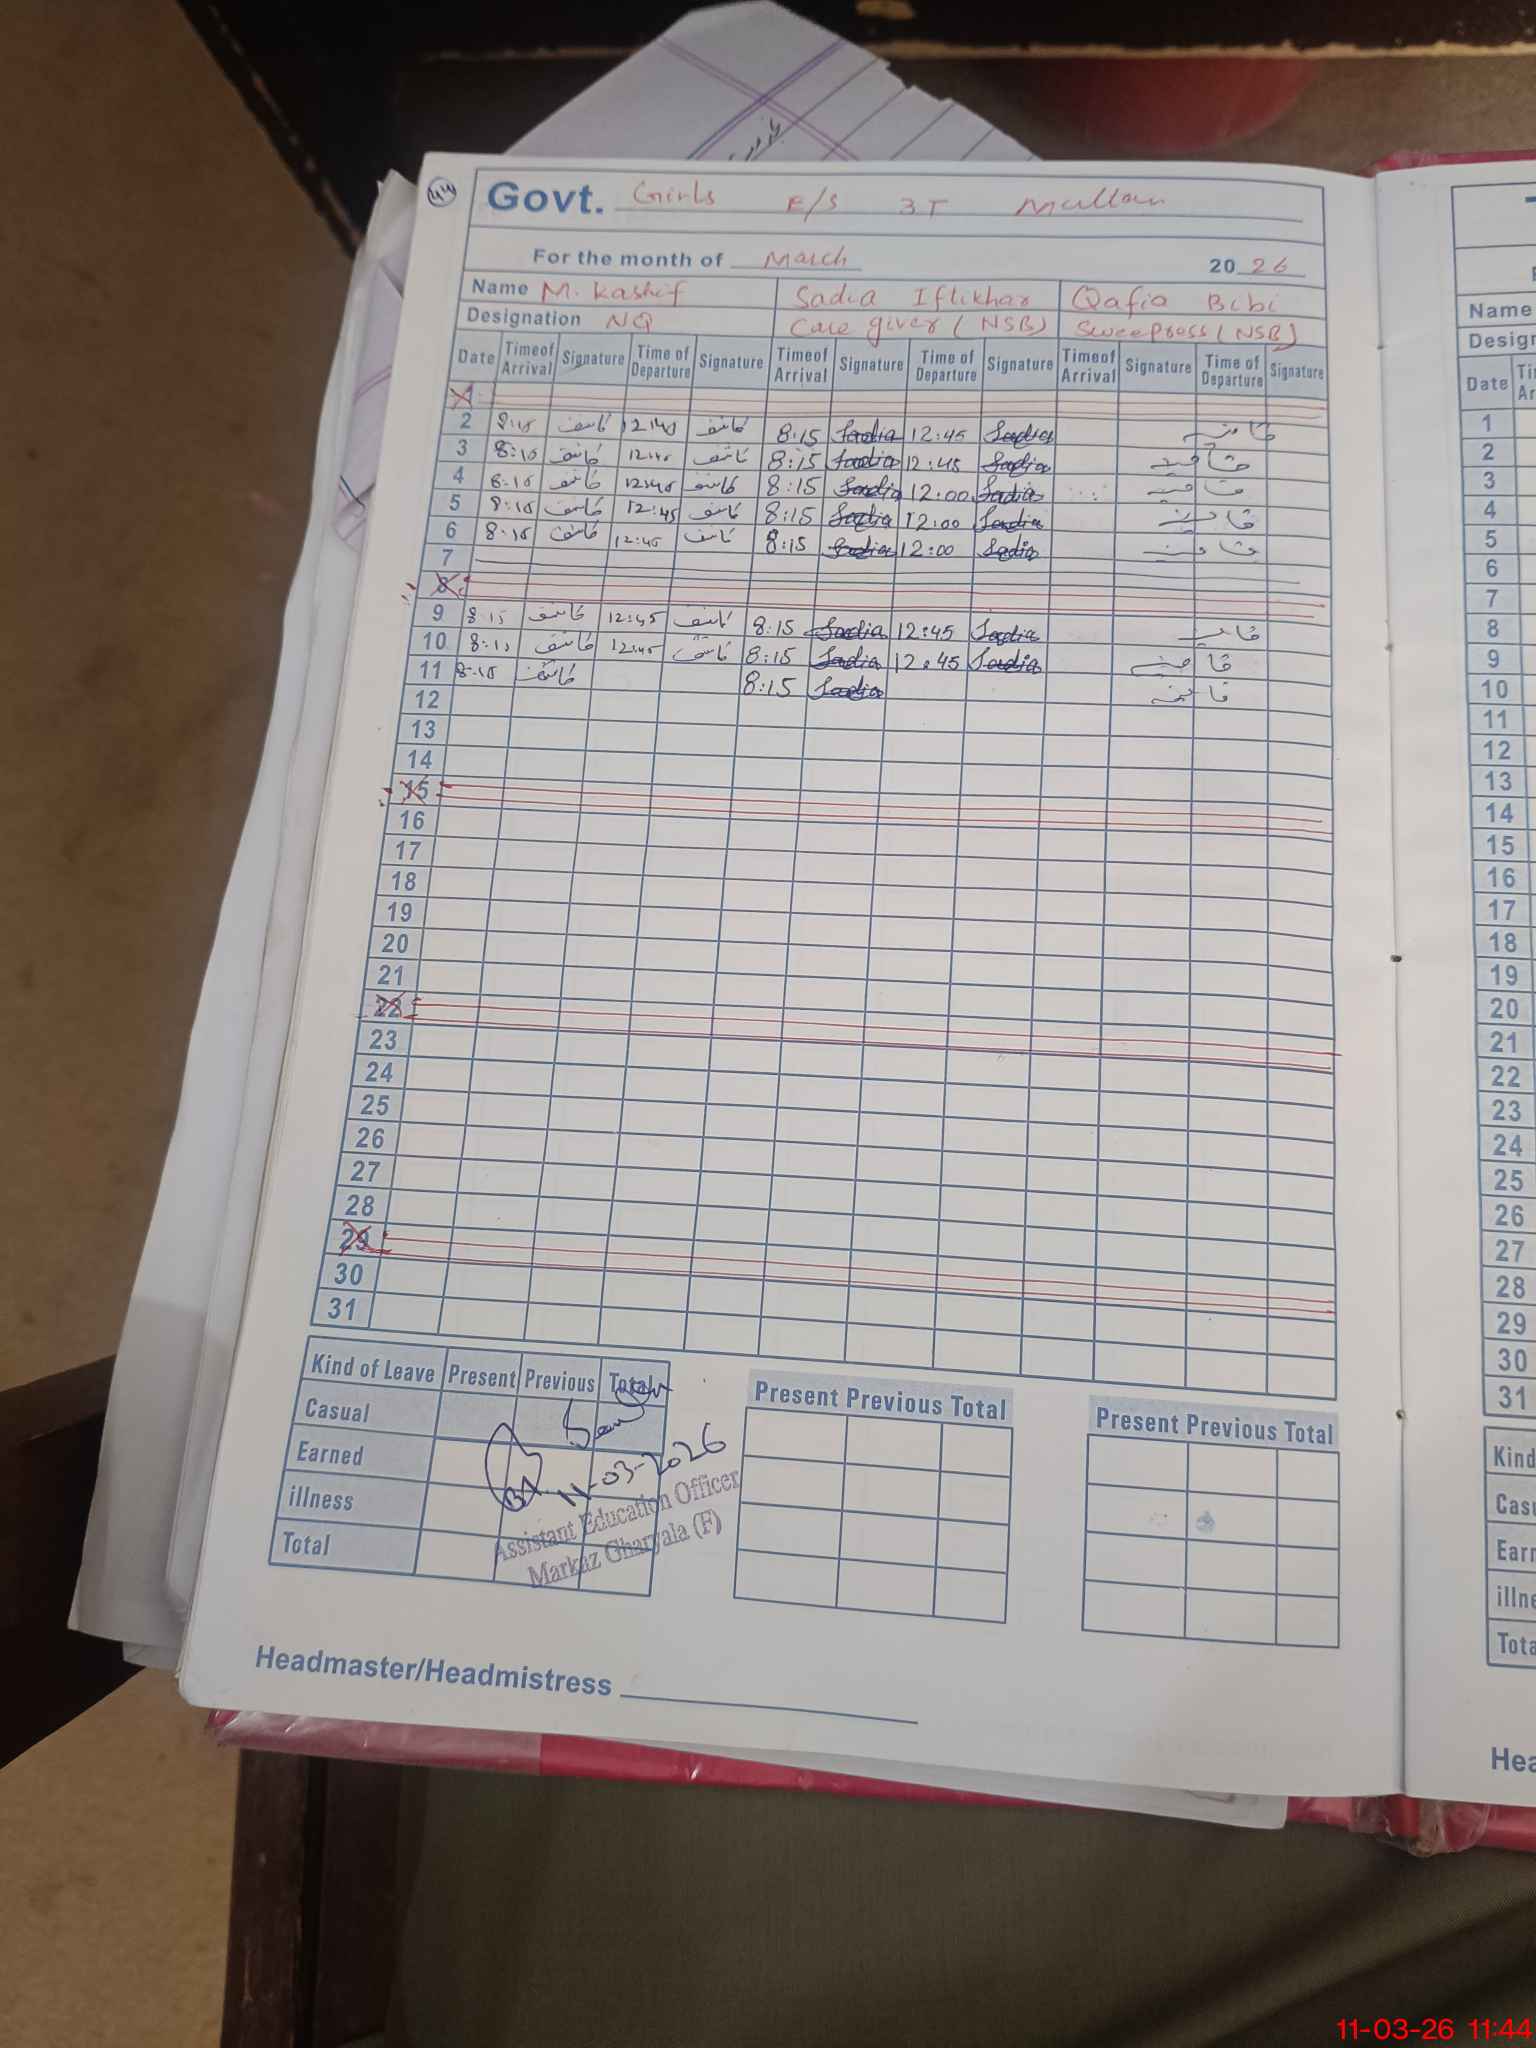 44
Govt. Girls E/S 3T Mullan
For the month of March 2026
Name M. Kashif Sadia Iftikhar Qafia Bibi
Designation NQ Care giver (NSB) Sweepress (NSB)
Date Timeof Arrival Signature Time of Departure Signature Timeof Arrival Signature Time of Departure Signature Timeof Arrival Signature Time of Departure Signature
1
2 8:15 کاشف 12:45 کاشف 8:15 Sadia 12:45 Sadia
3 8:15 کاشف 12:45 کاشف 8:15 Sadia 12:45 Sadia قافیہ
4 8:15 کاشف 12:45 کاشف 8:15 Sadia 12:00 Sadia قافیہ
5 8:15 کاشف 12:45 کاشف 8:15 Sadia 12:00 Sadia
6 8:15 کاشف 12:45 کاشف 8:15 Sadia 12:00 Sadia
7
8
9 8:15 کاشف 12:45 کاشف 8:15 Sadia 12:45 Sadia
10 8:15 کاشف 12:45 کاشف 8:15 Sadia 12:45 Sadia
11 8:15 کاشف 8:15 Sadia
12
13
14
15
16
17
18
19
20
21
22
23
24
25
26
27
28
29
30
31
Kind of Leave Present Previous Total Present Previous Total Present Previous Total
Casual
Earned
illness
Total
11-03-2026
Assistant Education Officer
Markaz Gharyala (F)
Headmaster/Headmistress
Name
Date
1
2
3
4
5
6
7
8
9
10
11
12
13
14
15
16
17
18
19
20
21
22
23
24
25
26
27
28
29
30
31
Kind
Total
11-03-26 11:44